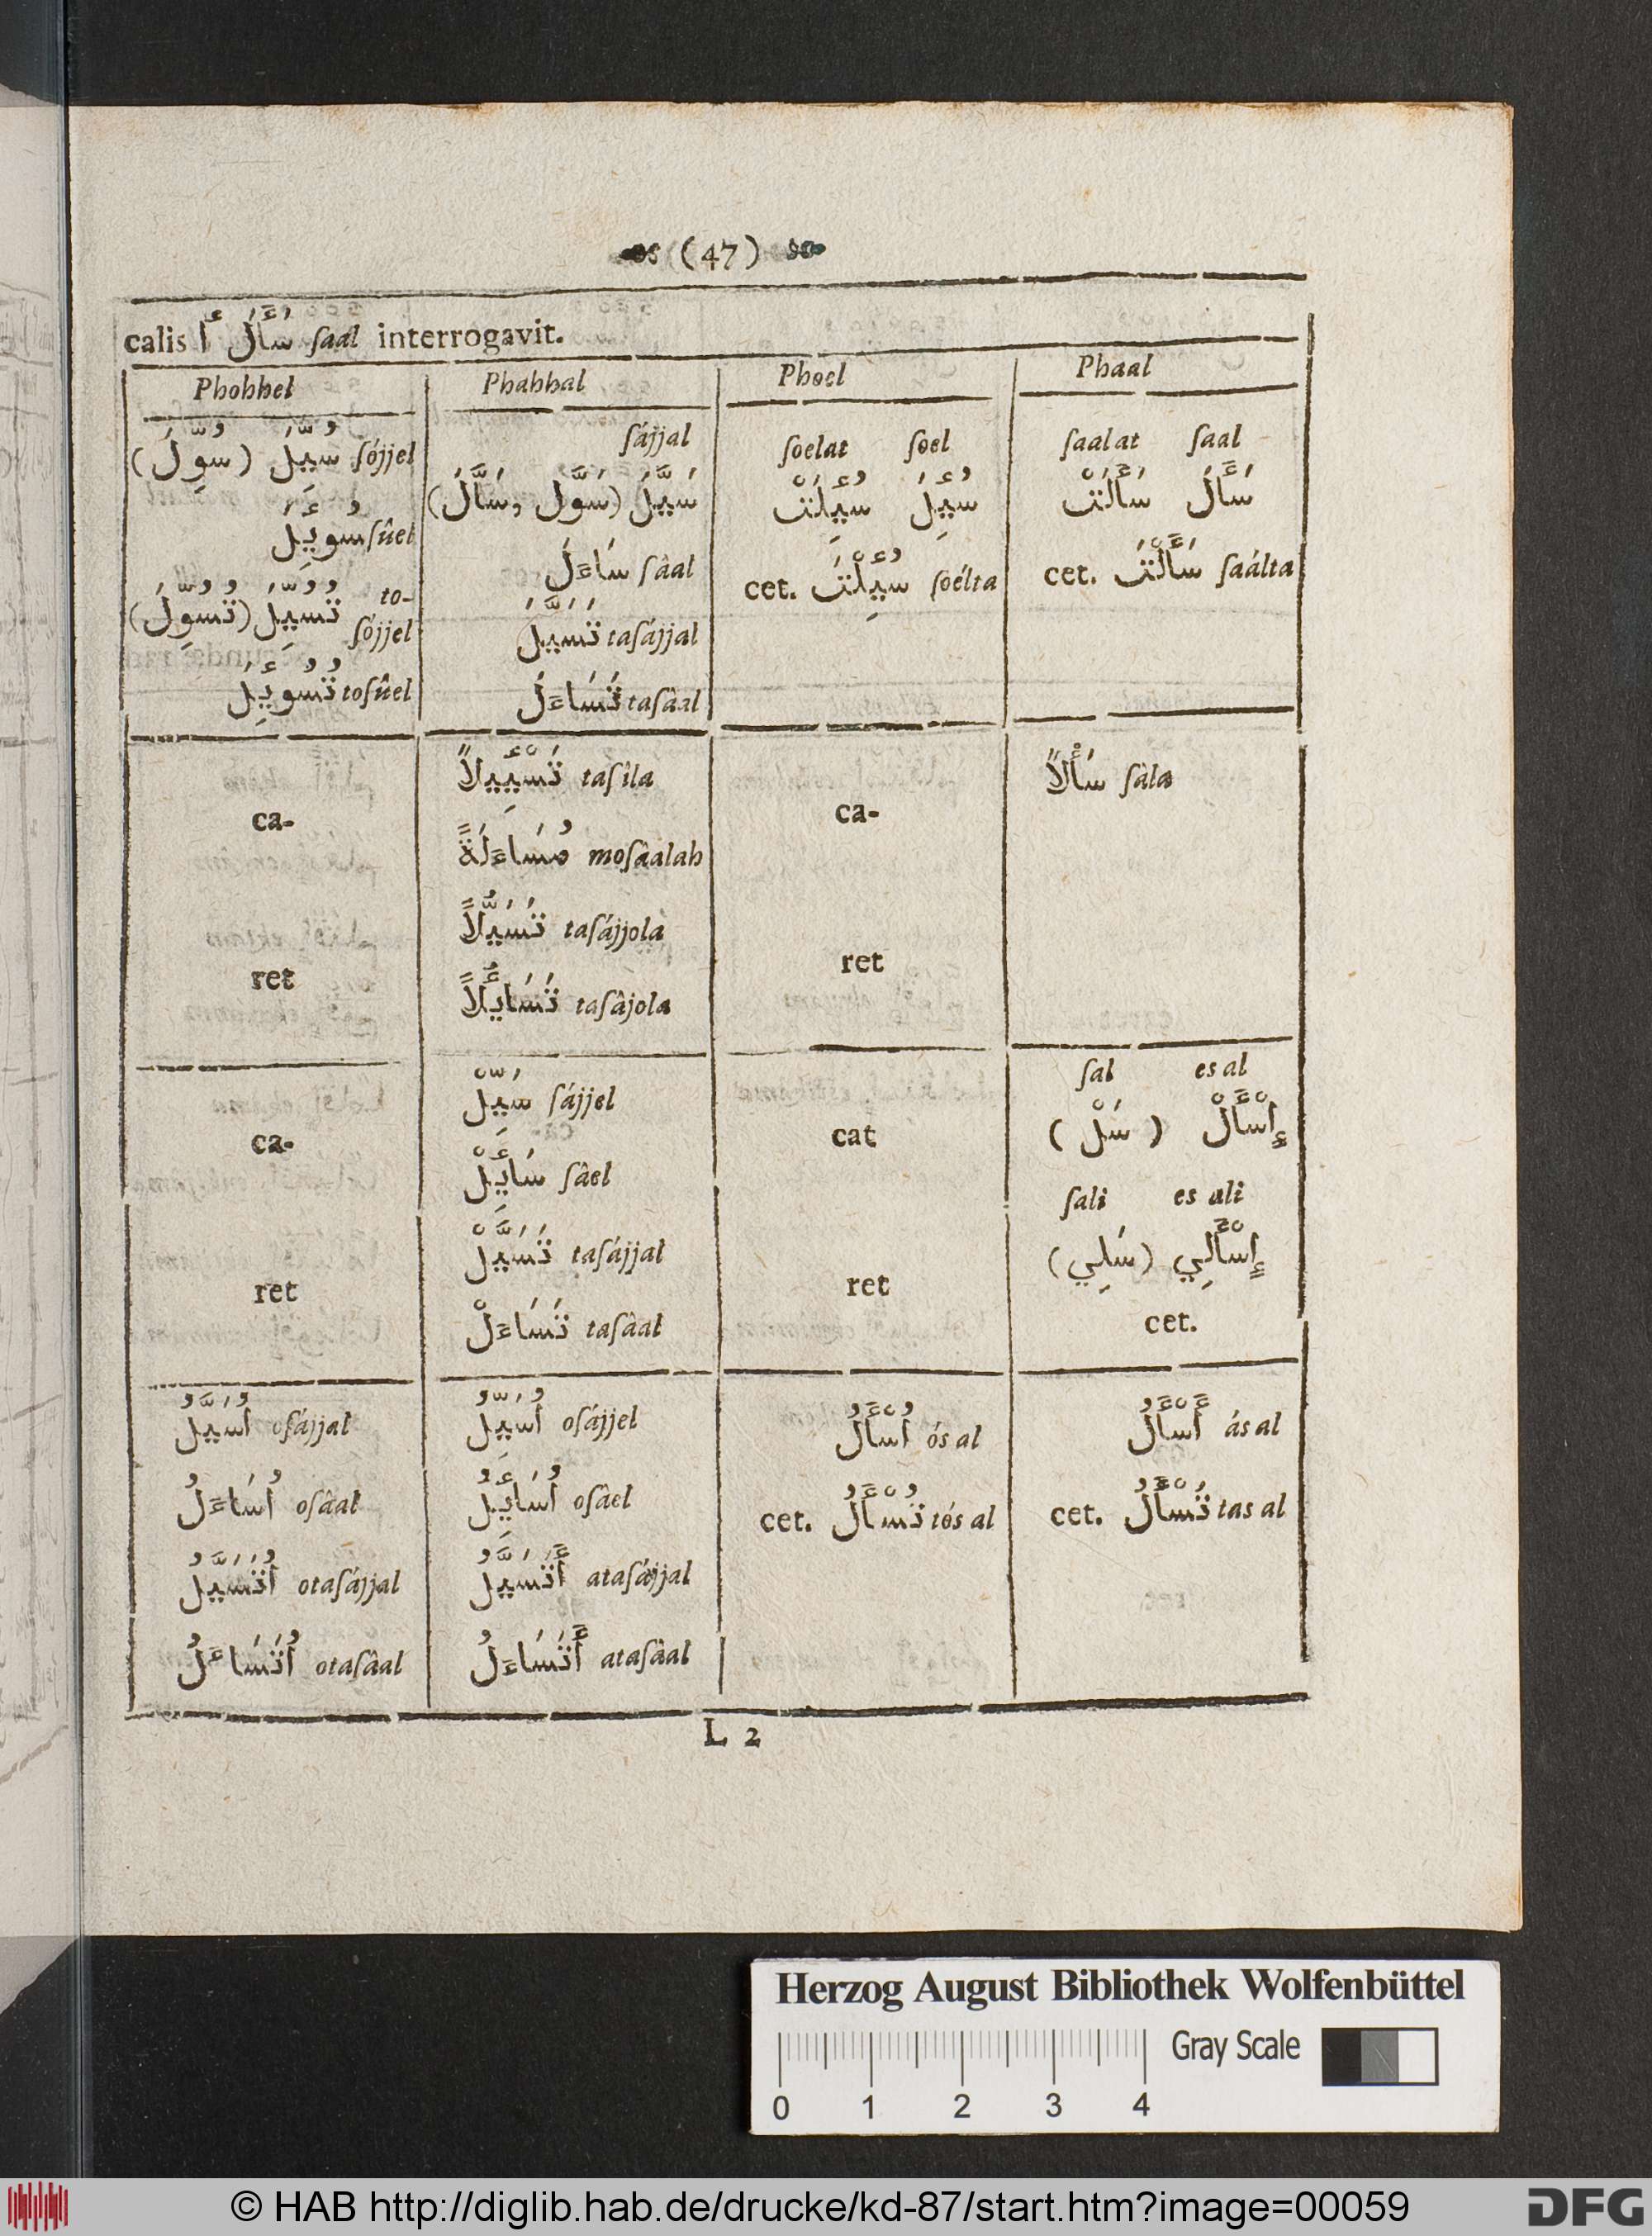 (47)
calis أ سَأَلَ ſaal interrogavit.
Phohhel Phahhal Phoel Phaal
ſájjal
سَيَّلَ (سَوَّل, سَأَّلَ)
سَاءَلَ ſâal
تَسَيَّلَ taſájjal
تَسَاءَلَ taſâal
سُيِّلَ (سُوِّلَ) ſójjel
سُوئِلَ ſûel
to-
تُسُيِّلَ (تُسُوِّلَ) ſójjel
تُسُوئِلَ toſûel
ſoelat ſoel
سُئِلَ سُئِلَتْ
cet. سُئِلْتَ ſoélta
ſaalat ſaal
سَأَلَ سَأَلَتْ
cet. سَأَلْتَ ſaálta
ca-
ret
تَسْئِيلاً taſîla
مُسَاءَلَةً moſâalah
تَسَيُّلاً taſájjola
تَسَائُلاً taſâjola
ca-
ret
سَأْلاً ſâla
ca-
ret
سَيِّلْ ſájjel
سَائِلْ ſâel
تَسَيَّلْ taſájjal
تَسَاءَلْ taſâal
cat
ret
ſal es al
إِسْأَلْ (سَلْ)
ſali es ali
إِسْأَلِي (سَلِي)
cet.
أُسَيَّلُ oſájjal
أُسَاءَلُ oſâal
أُتَسَيَّلُ otaſájjal
أُتَسَاءَلُ otaſâal
أُسَيِّلُ oſájjel
أُسَائِلُ oſâel
أَتَسَيَّلُ ataſájjal
أَتَسَاءَلُ ataſâal
أُسْأَلُ ós al
cet. تُسْأَلُ tós al
أَسْأَلُ ás al
cet. تَسْأَلُ tas al
L 2
Herzog August Bibliothek Wolfenbüttel
Gray Scale
0 1 2 3 4
© HAB http://diglib.hab.de/drucke/kd-87/start.htm?image=00059
DFG